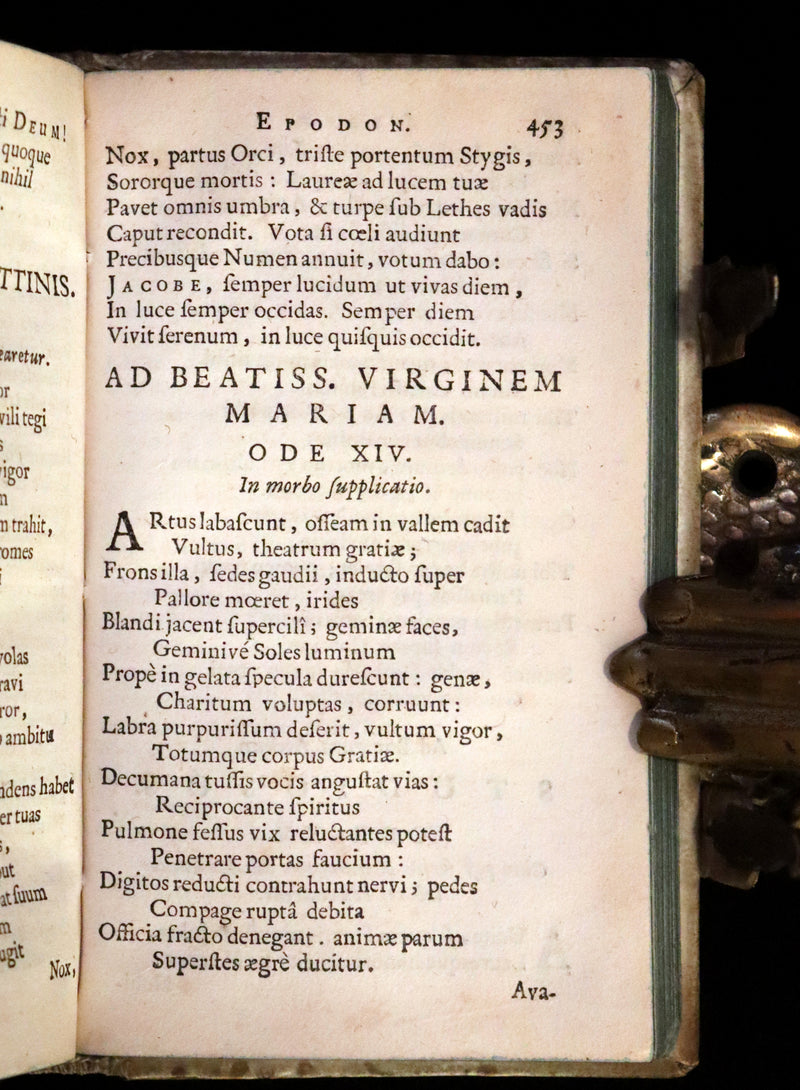 i DEUM!
quoque
nihil
TTINIS.
earetur.
or
vili tegi
s
igor
n
m trahit,
omes
i
volas
ravi
ror,
o ambitu
adens habet
er tuas
s,
out
at ſuum
m
ugit
Nox,
EPODON. 453
Nox, partus Orci, triſte portentum Stygis,
Sororque mortis : Laureæ ad lucem tuæ
Pavet omnis umbra, & turpe ſub Lethes vadis
Caput recondit. Vota ſi cœli audiunt
Precibusque Numen annuit, votum dabo :
JACOBE, ſemper lucidum ut vivas diem,
In luce ſemper occidas. Semper diem
Vivit ſerenum, in luce quiſquis occidit.
AD BEATISS. VIRGINEM
MARIAM.
ODE XIV.
In morbo ſupplicatio.
ARtus labaſcunt, oſſeam in vallem cadit
Vultus, theatrum gratiæ ;
Frons illa, ſedes gaudii, inducto ſuper
Pallore mœret, irides
Blandi jacent ſupercilî ; geminæ faces,
Geminivé Soles luminum
Propè in gelata ſpecula dureſcunt : genæ,
Charitum voluptas, corruunt :
Labra purpuriſſum deſerit, vultum vigor,
Totumque corpus Gratiæ.
Decumana tuſſis vocis anguſtat vias :
Reciprocante ſpiritus
Pulmone feſſus vix reluctantes poteſt
Penetrare portas faucium :
Digitos reducti contrahunt nervi ; pedes
Compage ruptâ debita
Officia fracto denegant. animæ parum
Superſtes ægrè ducitur.
Ava-